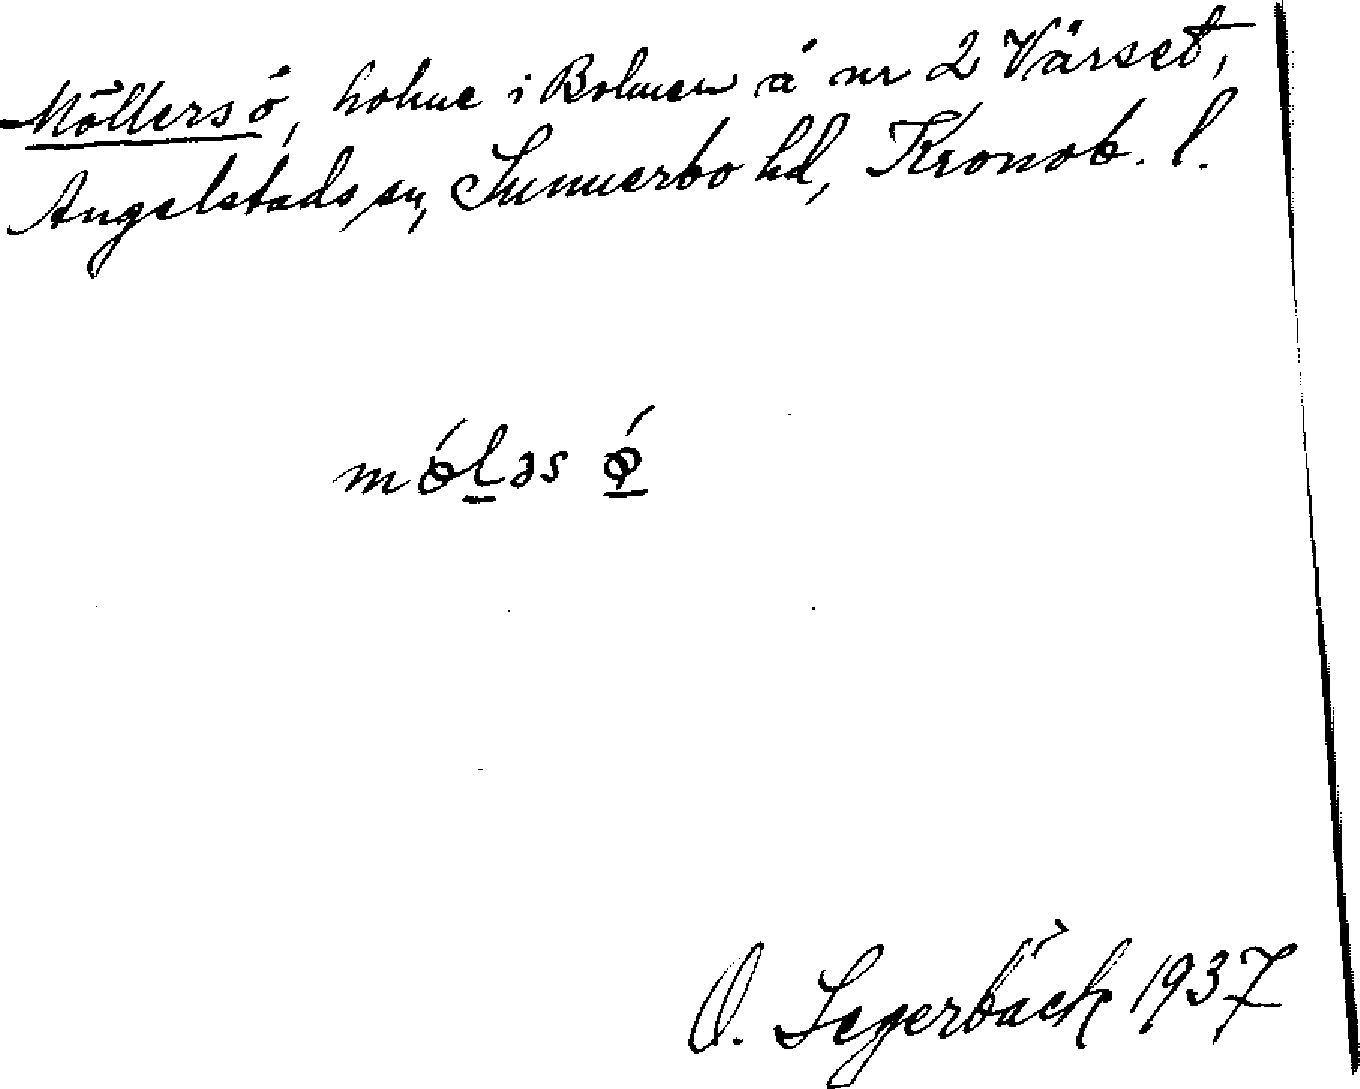 Möllersö, holme i Bolmen å nr 2 Värset,
Angelstads sn, Sunnerbo hd, Kronob. l.
mǿl̲əs ǿ̲
O. Segerbäck 1937